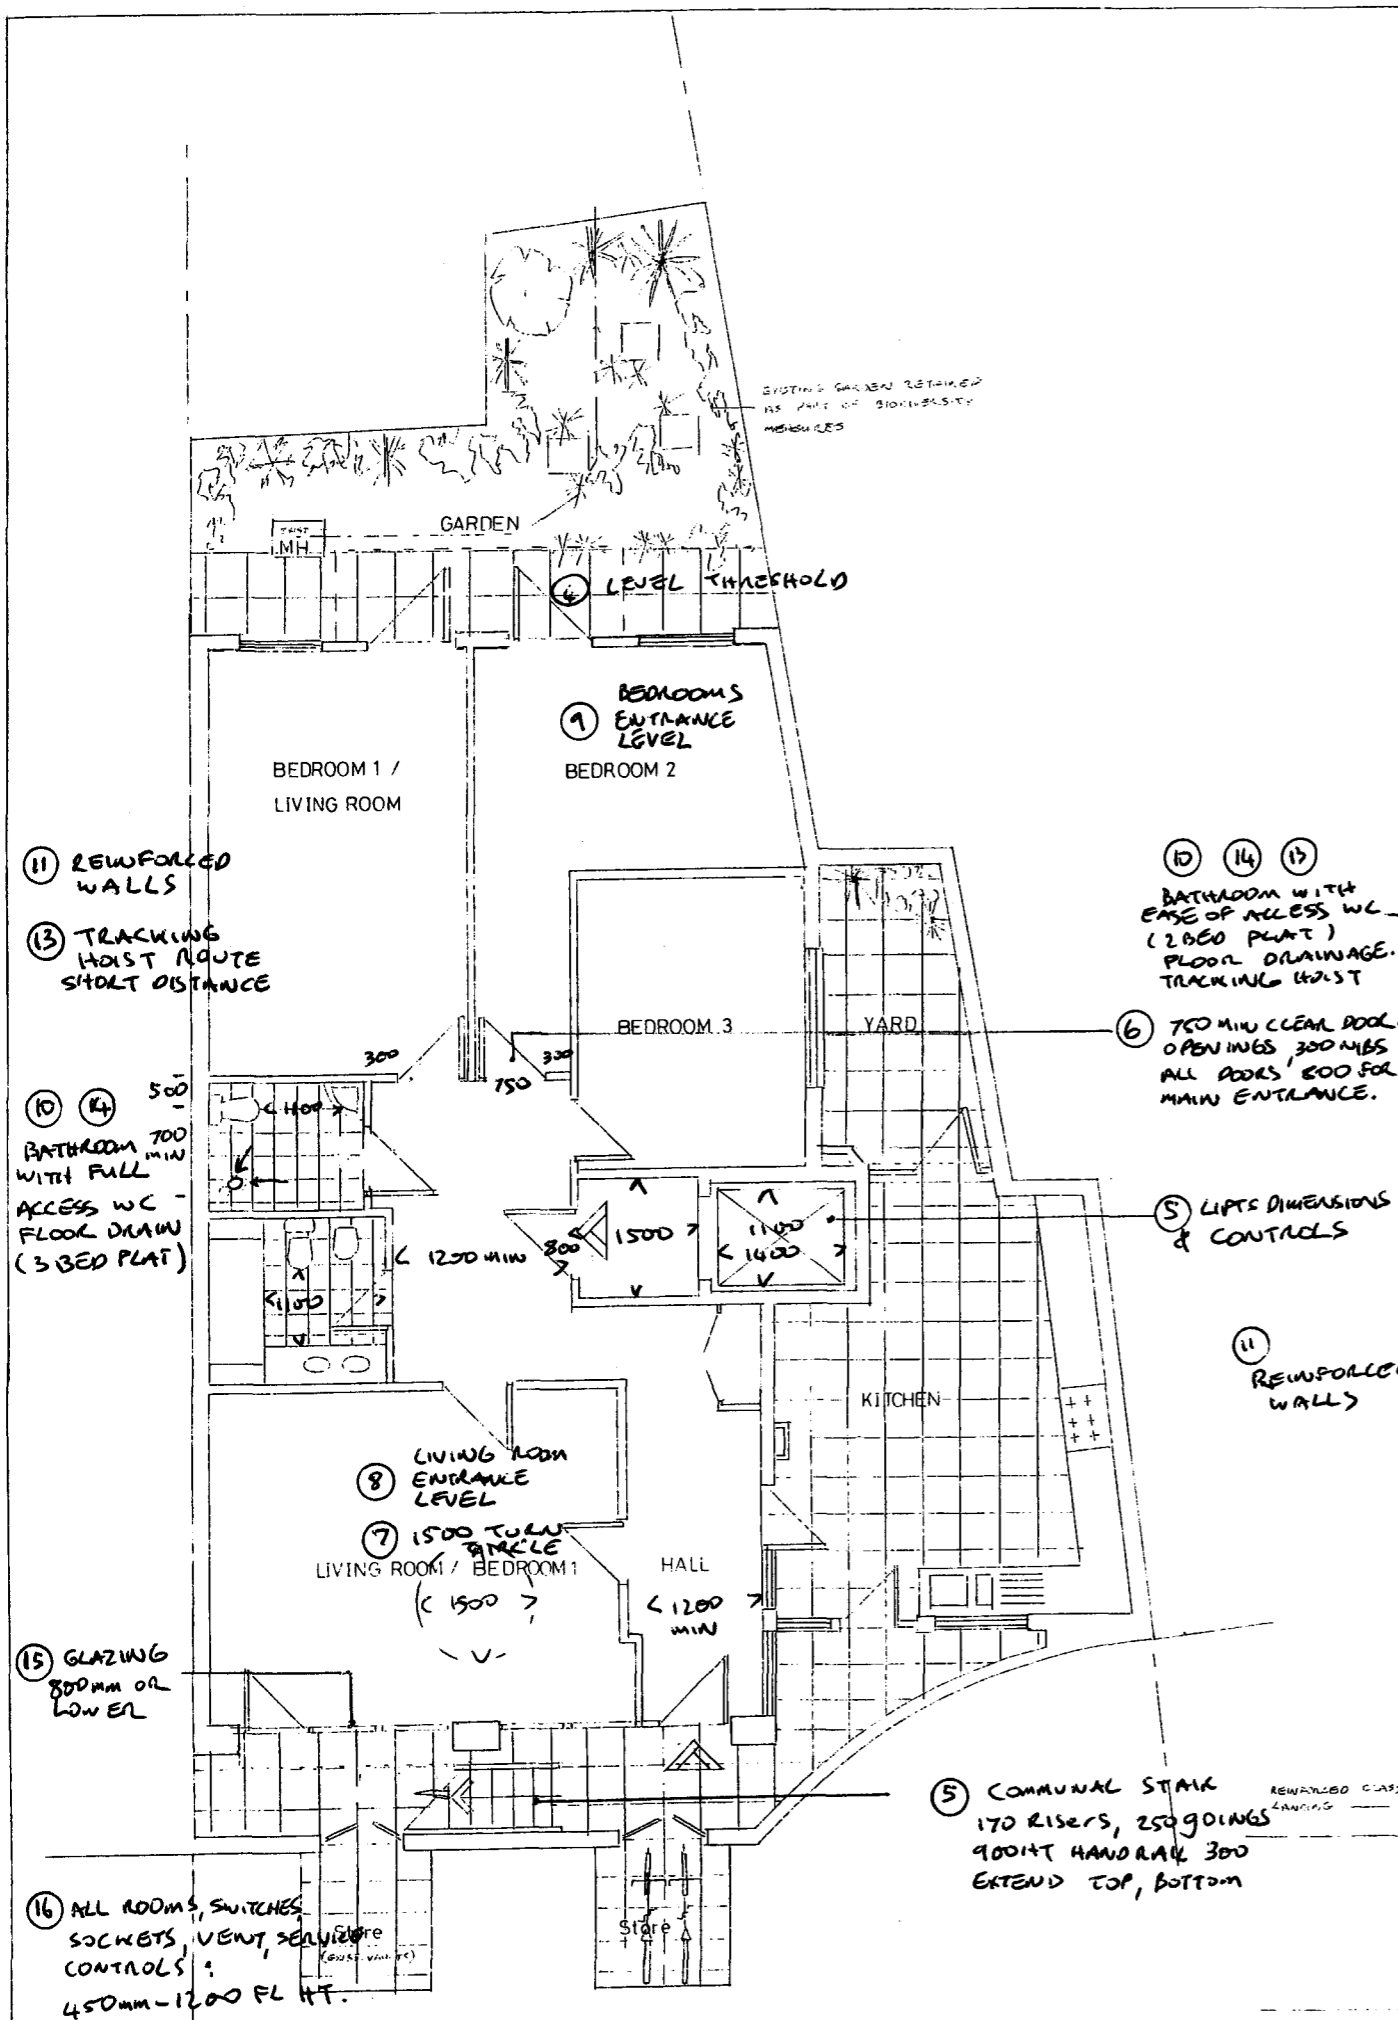 EXISTING GARDEN RETAINED
AS PART OF BIODIVERSITY
MEASURES
GARDEN
EXIST
MH
4 LEVEL THRESHOLD
9 BEDROOMS
ENTRANCE
LEVEL
BEDROOM 1 /
LIVING ROOM
BEDROOM 2
11 REINFORCED
WALLS
13 TRACKING
HOIST ROUTE
SHORT DISTANCE
10 14 13
BATHROOM WITH
EASE OF ACCESS WC
(2 BED FLAT)
FLOOR DRAINAGE.
TRACKING HOIST
BEDROOM 3
YARD
6 750 MIN CLEAR DOOR
OPENINGS, 300 NIBS
ALL DOORS, 800 FOR
MAIN ENTRANCE.
300
750
300
500
700
MIN
1100
10 14
BATHROOM
WITH FULL
ACCESS WC
FLOOR DRAIN
(3 BED FLAT)
< 1200 MIN
800
1500 >
1100
< 1400 >
5 LIFTS DIMENSIONS
& CONTROLS
<1100 >
11
REINFORCED
WALLS
KITCHEN
8 LIVING ROOM
ENTRANCE
LEVEL
7 1500 TURN
CIRCLE
LIVING ROOM / BEDROOM 1
< 1500 >
HALL
< 1200 >
MIN
15 GLAZING
800mm OR
LOWER
5 COMMUNAL STAIR
170 RISERS, 250 goings
900HT HANDRAIL 300
EXTEND TOP, BOTTOM
LANDING
16 ALL ROOMS, SWITCHES
SOCKETS, VENT, SERVICE
CONTROLS:
450mm-1200 FL HT.
Store
(EXIST. VAULTS)
Store